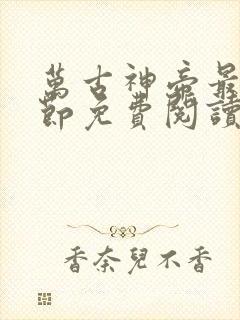 萬古神帝最
節免費閱讀
香奈兒不香